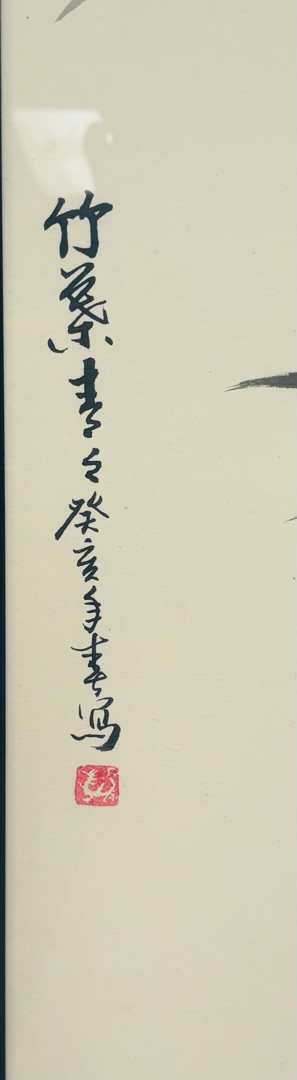 竹葉青々癸亥年春寫